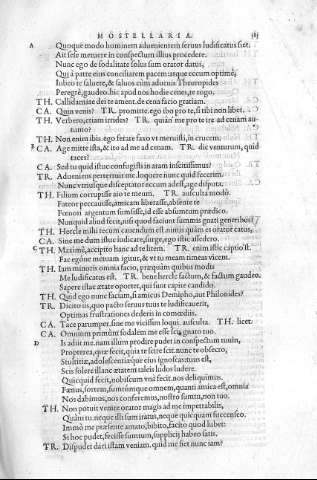 MOSTELLARIA.
A Quoque modo hominem aduenientem seruus ludificatus siet.
Ait sese metuere in conspectum illius procedere.
Nunc ego de sodalitate solus sum orator datus,
Qui à patre eius conciliarem pacem. atque eccum optimè,
Iubeo te saluere, & saluos cum aduenis Theuropides
Peregrè, gaudeo. hic apud nos hodie cenes, te rogo.
TH. Callidamate dei te ament. de cena facio gratiam.
CA. Quin venis? TR. promitte. ego ibo pro te, si tibi non libet.
TH. Verbero, etiam irrides? TR. quian' me pro te ire ad cenam au-
tumo?
TH. Non enim ibis. ego ferare faxo vt meruisti, in crucem.
B CA. Age mitte ista, & ito ad me ad cenam. TR. dic venturum, quid
taces?
CA. Sed tu quid istuc confugisti in aram inscitissimus?
TR. Adueniens perterruit me. loquere nunc quid fecerim.
Nunc vtrisque disceptator eccum adest, age disputa.
TH. Filium corrupisse aio te meum. TR. ausculta modò.
Fateor peccauisse, amicam liberasse, absente te
Fœnori argentum sumsisse, id esse absumtum prædico.
Nunquid aliud fecit, nisi quod faciunt summis gnati generibus?
TH. Hercle mihi tecum cauendum est. nimis quàm es orator catus,
CA. Sine me dum istuc iudicare, surge, ego istic assedero.
C TH. Maximè, accipito hanc ad te litem. TR. enim istic captio st.
Fac ego ne metuam igitur, & vt tu meam timeas vicem.
TH. Iam minoris omnia facio, præquàm quibus modis
Me ludificatus est. TR. bene hercle factum, & factum gaudeo.
Sapere istac ætate oportet, qui sunt capite candido.
TH. Quid ego nunc faciam, si amicus Demipho, aut Philonides?
TR. Dicito iis, quo pacto seruus tuus te ludificauerit,
Optimas frustrationes dederis in comœdiis.
CA. Tace parumper. sine me vicissim loqui. ausculta. TH. licet.
CA. Omnium primùm sodalem me esse scis gnato tuo.
D Is adiit me. nam illum prodire pudet in conspectum tuum,
Propterea, quæ fecit, quia te scire scit. nunc te obsecro,
Stultitiæ, adolescentiæque eius ignoscas. tuus est,
Scis solere illanc ætatem taleis ludos ludere.
Quicquid fecit, nobiscum vnà fecit. nos deliquimus.
Fœnus, sortem, sumtumque omnem, quanti amica est, omnia
Nos dabimus, nos conferemus, nostro sumtu, non tuo.
TH. Non potuit venire orator magis ad me impetrabilis,
Quàm tu. neque illi sum iratus, neque quicquam succenseo.
Immò me præsente amato, bibito, facito quod lubet:
Si hoc pudet, fecisse sumtum, supplicij habeo satis.
TR. Dispudet dari istam veniam. quid me fiet nunc iam?